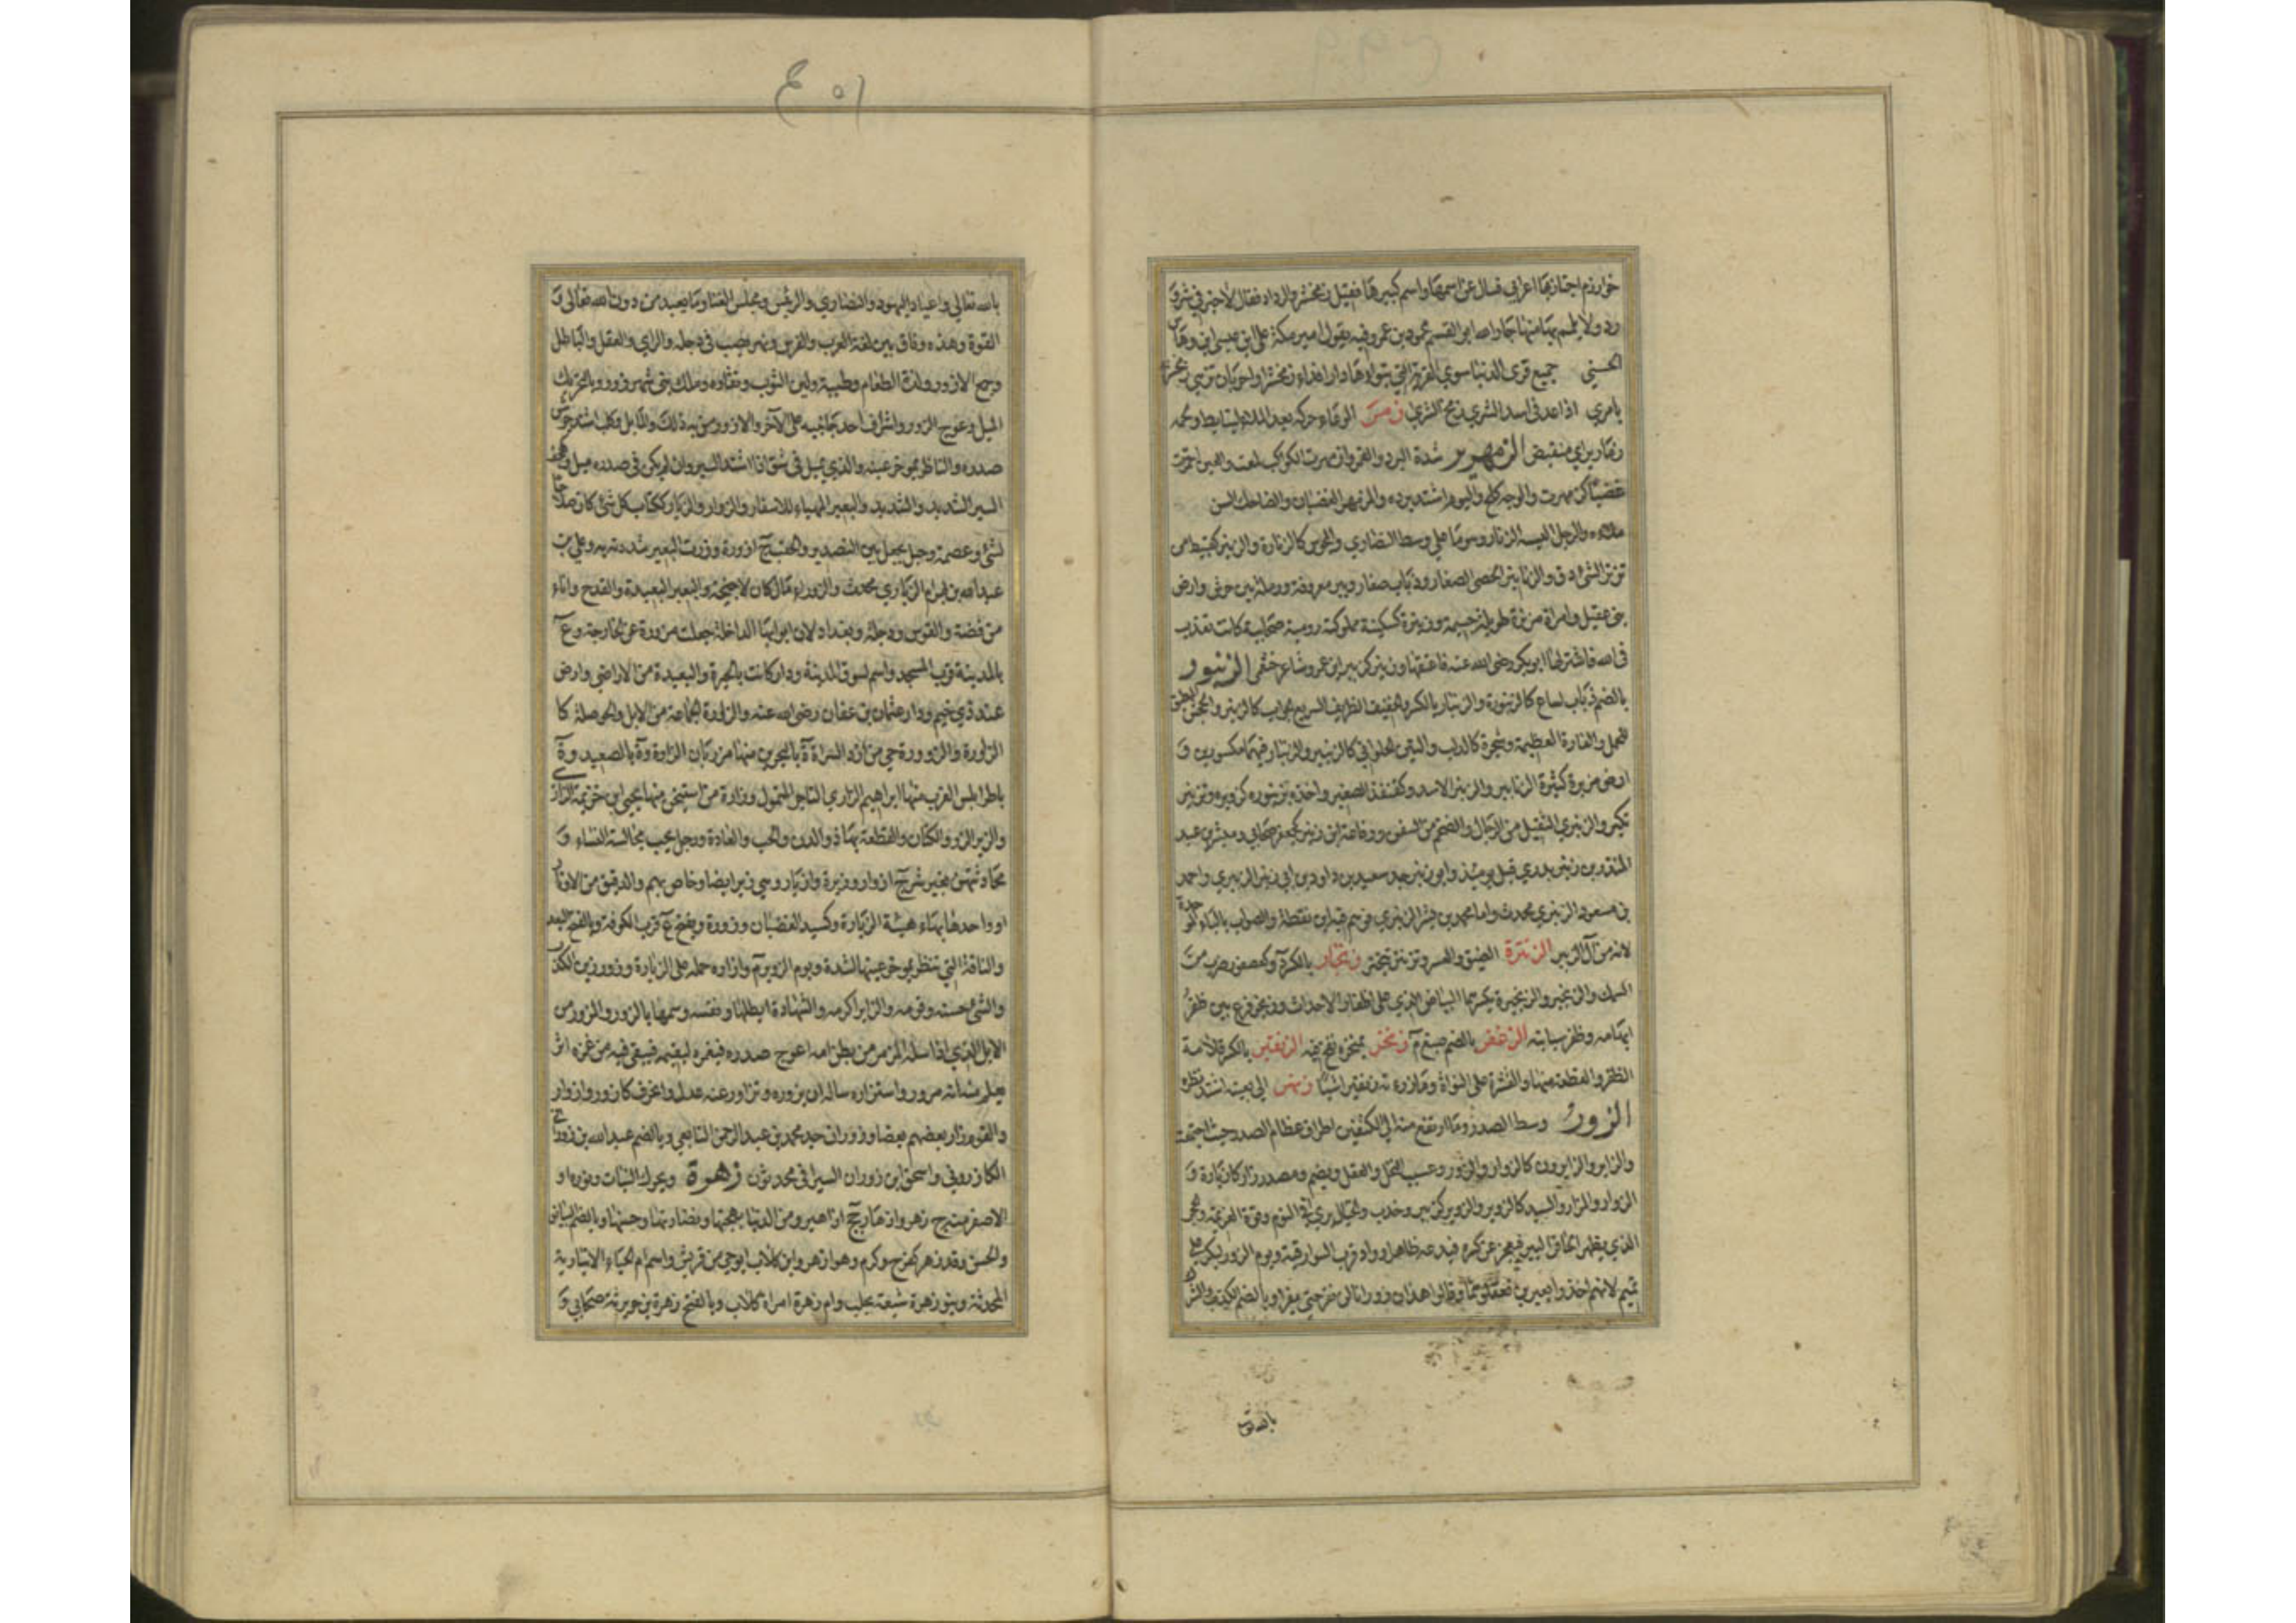 خوارزم اجتاز بها اعرابي فسال عن اسمها واسم كبيرها فقيل زمخشر والرداد فقال لا خير في شر و
رد ولا يلمم بها منها جار الله ابو القسم محمود بن عمر وفيه يقول امير مكة علي ابن عيسى ابن وهاس
الحسني جميع قرى الدنيا سوى القرية التي تبواها دارا فداء زمخشرا واحر بان تزهى زمخشر
بامرئ اذا عد في اسد الشرى زمخ الشرى زمر
وزمارير اي منقبض الزمهرير شدة البرد والقمر وازمهرت الكواكب لمعت والعين احمرت
غضبا كزمهرت والوجه كلح واليوم اشتد برده والمزمهر الغضبان والضاحك السن
ملاه والرجل البسه الزنار وهو ما على وسط النصارى والمجوس كالزنارة والزنير كقبيط من
تزنر الشئ دق والزنانير الحصى الصغار وذباب صغار وبير معروفة ورملة بين جرش وارض
بني عقيل وامراة مزنرة طويلة جسيمة وزنيرة كسكينة مملوكة رومية صحابية كانت تعذب
في الله فاشتراها ابو بكر رضى الله عنه فاعتقها وزنير كزبير ابن عمرو شاعر خثعمى الزنبور
بالضم ذباب لساع كالزنبورة والزنبار بالكسر والخفيف الظريف السريع الجواب كالزنبر والجحش المطيق
للحمل والفارة العظيمة وشجرة كالدلب والتين الحلواني كالزنبير والزنبار فيهما مكسورين و
ارض مزبرة كثيرة الزنابير والزنبر الاسد وكقنفذ الصغير واخذه بزنبوره كزوبره وتزنبر
تكبر والزنبري الثقيل من الرجال والضخم من السفن ورفاعة ابن زنبر كجعفر صحابي ومبشر بن عبد
المنذر بن زنبر بدري قتل يومئذ وابو زنبر جد سعيد بن داود بن ابي زنبر الزنبري واحمد
بن مسعود الزنبري محدث واما محمد بن بشر الزنبري فوهم فيه ابن نقطة والصواب بالباء الموحدة
لانه من آل الزبير الزنترة الضيق والعسر وتزنتر تبختر زنجار بالكسر م وكعصفور ضرب من
السمك والزنجير والزنجيرة بكسرهما البياض الذي على اظفار الاحداث وزنجر قرع بين ظفر
ابهامه وظفر سبابته الزنخفر بالضم صبغ م زنخر بمنخره نفخ فيه الزنقير بالكسر قلامة
الظفر والقطعة منها والقشرة على النواة وما رزءته زنقيرا شيا زنهر الي بعينه اشتد نظره
الزور وسط الصدر وما ارتفع منه الى الكتفين اطراف عظام الصدر حيث اجتمعت
والزاير والزايرون كالزوار والزور وعسيب النخل والعقل ويضم ومصدر زار كالزيارة و
الزوار والمزار والسيد كالزوير والزوير كزبير وخدب والخيال يرى في النوم وقوة العزيمة والحجر
الذي يظهر لحافر البير فيعجز عن كسره فيدعه ظاهرا وواد قرب السوارقية ويوم الزور لبكر على
تميم لانهم اخذوا بعيرين فعقلوهما وقالوا هذان زورانا لن نفر حتى يفرا وبالضم الكذب والشرك
بالله تعالى
١٥ع
بالله تعالى واعياد اليهود والنصارى والرئيس ومجلس الغناء وما يعبد من دون الله تعالى و
القوة وهذه وفاق بين لغة العرب والفرس ونهر يصب في دجلة والراي والعقل والباطل
وجمع الازور ولذة الطعام وطيبه ولين الثوب ونقاوه وملك بني شهرزور وبالتحريك
الميل وعوج الزور واشراف احد جانبيه على الآخر والازور من به ذلك والمائل وكلب استدق جوشن
صدره والناظر بموخر عينه والذي يميل في شق اذا اشتد السير وان لم يكن في صدره ميل وكهجف
السير الشديد والشديد والبعير المهياء للاسفار والزوار والزيار ككتاب كل شئ كان صلاحا
لشئ وعصمة وحبل يجعل بين التصدير والحقب ج ازورة وزرت البعير شددته به وعلي بن
عبد الله بن بهرام الزياري محدث والزوراء مال كان لاحيحة والبعير البعيدة والقدح واناء
من فضة والقوس ودجلة وبغداد لان ابوابها الداخلة جعلت مزورة عن الخارجة وع
بالمدينة قرب المسجد واسم لسوق المدينة ودار كانت بالحيرة والبعيدة من الاراضي وارض
عند ذي خيم ودار عثمان بن عفان رضى الله عنه والزارة الجماعة من الابل والحوصلة كا
الزاورة والزوورة وحي من ازد السراة وة بالبحرين منها مرزبان الزارة وة بالصعيد وة
باطرابلس الغرب منها ابراهيم الزاري التاجر المتمول وزارة من اسنيخن منها يحيى ابن خزيمة الزاري
والزير الزر والكتان والقطعة بهاء والدن والحب والعادة ورجل يحب مجالسة النساء و
محادثتهن بغير شر ج ازوار وزيرة وازيار وهي زير ايضا وخاص بهم والدقيق من الاوتار
او واحدها بهاء هيئة الزيارة وكسيد الغضبان وزورة ويفتح ع قرب الكوفة وبالفتح البعد
والناقة التي تنظر بموخر عينها لشدة ويوم الزوير م وازاره حمله على الزيارة وزور زين الكذب
والشئ حسنه وقومه والزاير اكرمه والشهادة ابطلها ونفسه وسمها بالزور والمزور من
الابل الذي اذا سله المزمر من بطن امه اعوج صدره فيغمزه ليقيمه فيبقى فيه من غمزه اثر
يعلم انه مزور واستزاره ساله ان يزوره وتزاور عنه عدل وانحرف كازور وازوار
والقوم زار بعضهم بعضا وزوران جد محمد بن عبد الرحمن التابعي وبالضم عبد الله بن زوران
الكازروني واسحق ابن زوران السيرافي محدثون زهرة ويحرك النبات ونوره او
الاصفر منه ج زهر وازهار جج ازاهير ومن الدنيا بهجتها ونضارتها وحسنها وبالضم البياض
والحسن وقد زهر كفرح وكرم وهو ازهر وابن كلاب ابو حي من قريش واسم ام الحياء الانبارية
المحدثة وبنو زهرة شيعة بحلب وام زهرة امراة كلاب وبالفتح زهرة بن جويرية صحابي و